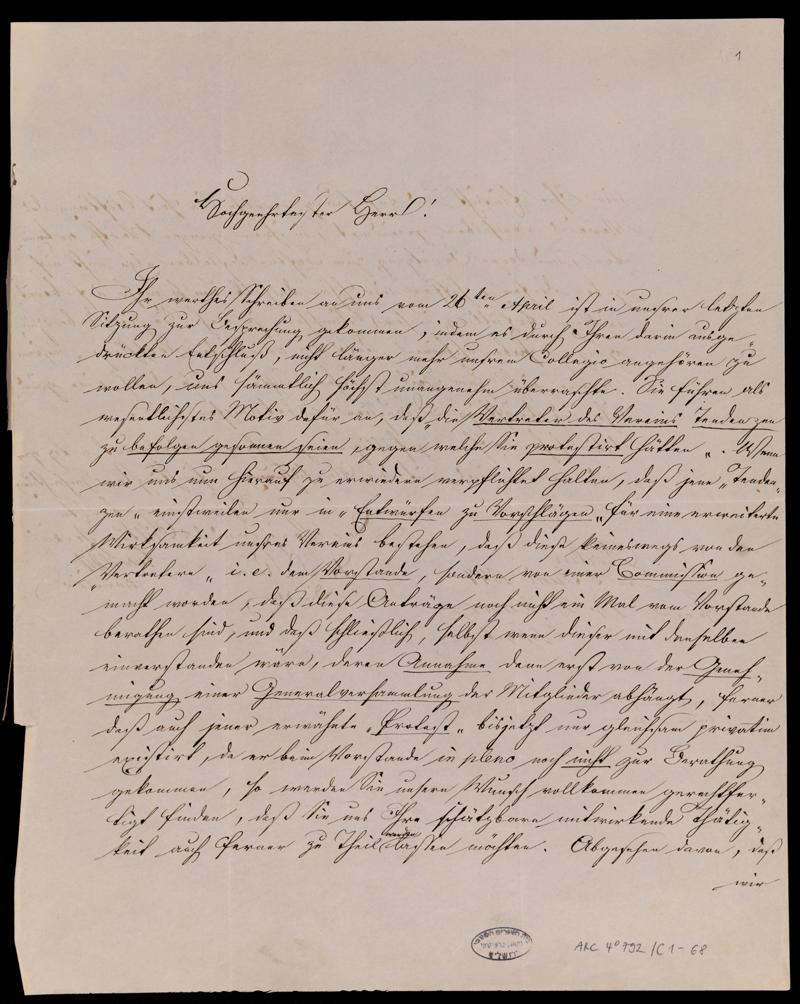 1
Hochgeehrtester Herr!
Ihr werthes Schreiben an uns vom 26ten April ist in unsrer letzten
Sitzung zur Besprechung gekommen, indem es durch Ihren darin ausge-
drückten Entschluß, nicht länger mehr unsrem Collegio angehören zu
wollen, uns sämmtlich höchst unangenehm überraschte. Sie führen als
wesentlichstes Motiv dafür an, daß „die Vertreter des Vereins Tendenzen
zu befolgen gesonnen seien, gegen welche Sie protestirt hätten“. Wenn
wir uns nun hierauf zu erwiedern verpflichtet halten, daß jene „Tenden-
zen“ einstweilen nur in „Entwürfen zu Vorschlägen“ für eine erweiterte
Wirksamkeit unsres Vereins bestehen, daß diese keineswegs von den
„Vertretern“ i. e. dem Vorstande, sondern von einer Commission ge-
macht worden, daß diese Anträge noch nicht ein Mal vom Vorstande
berathen sind, und daß schließlich, selbst wenn dieser mit denselben
einverstanden wäre, deren Annahme denn erst von der Geneh-
migung einer Generalversammlung der Mitglieder abhängt, ferner
daß auch jener erwähnte „Protest“ bisjetzt nur gleichsam privatim
existirt, da er beim Vorstande in pleno noch nicht zur Berathung
gekommen, so werden Sie unsern Wunsch vollkommen gerechtfer-
tigt finden, daß Sie uns Ihre schätzbare mitwirkende Thätig-
keit auch ferner zu Theil werden lassen möchten. Abgesehen davon, daß
wir
ARC 4° 792/C1-68